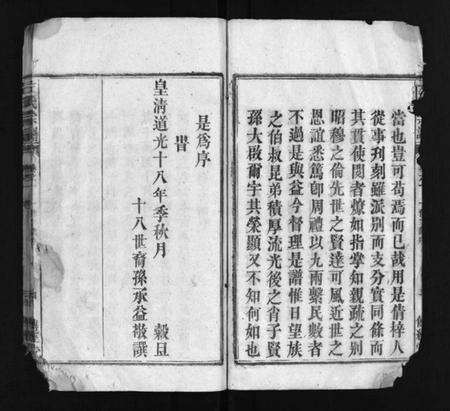 當也豈可苟焉而已哉用是倩梓人
從事刋刻雖派別而支分實同條而
其貫使閱者燎如指掌知親疏之別
昭穆之倫先世之賢達可風近世之
恩誼悉篤卽周禮以九兩繫民數者
不過是與益今督理是譜惟日望族
之伯叔昆弟積厚流光後之肖子賢
孫大啟爾宇其榮顯又不知何如也
是爲序
旹
皇淸道光十八年季秋月 穀旦
十八世裔孫承益敬譔